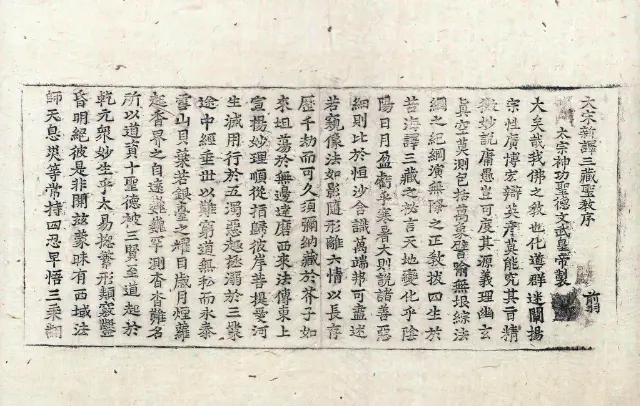 大宋新譯三藏聖教序
太宗神功聖德文武皇帝製
翦
大矣哉我佛之教也化導群迷闡揚
宗性廣博宏辯英彥莫能究其旨精
微妙說庸愚豈可度其源義理幽玄
真空莫測包括萬象譬喻無垠綜法
網之紀綱演無際之正教拔四生於
苦海譯三藏之秘言天地變化乎陰
陽日月盈虧乎寒暑大則說諸善惡
細則比於恒沙含識萬端邦可盡述
若窺像法如影隨形離六情以長存
歷千劫而可久須彌納藏於芥子如
來坦蕩於無邊達磨西來法傳東土
宣揚妙理順從指歸彼岸菩提愛河
生滅用行於五濁惡趣拯溺於三業
途中經垂世以難窮道無私而永泰
雪山貝葉若銀臺之耀目歲月煙蘿
起香界之自遠巍巍罕測杳杳難名
所以道資十聖德被三賢至道起於
乾元衆妙生乎太易揔繁形類竅鑿
昏明絕彼是非開茲蒙昧有西域法
師天息災等常持四忍早悟三乘翻